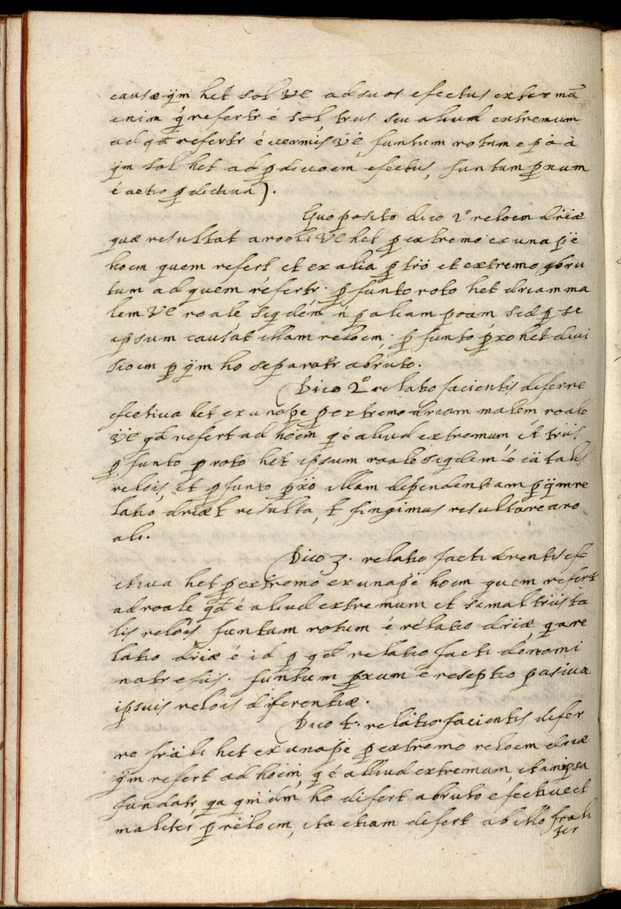 causæ qm het sol ve ad suos efectus ex ter mã
enim q refertr é sol trus seu aliud extremum
ad qd refertr é vermis ve funtum rotum e po à
qm sol het ad pdivoem efectus, funtum pxum
é actio pdictiva).
Quo posito dico 2º reloem driæ
quæ resultat a rooli ve het p extremo ex una pe
hoem quem refert et ex alia p trö et extremo bru
tum ad quem refertr. p funto roto het driam ma
lem ve roale siqdem n p aliam poam sed p se
ipsum causat illam reloem, p funto pxo het divi
sioem p qm ho separatr a bruto.
(Dico 2º relatio facientis diferre
efectiva het ex una pe p extremo driam malem roale
ve qd refert ad hoem q é aliud extremum et trus
p funto p roto het ipsum roale siqdem é cã talis
relois, et p funto pxo illam dependentiam p qm re
latio driæ t resulta, t fingimus resultare a ro
ali.
Dico 3. relatio facti drentis efe
ctiva het p extremo ex una pe hoem quem refert
ad roale qd é aliud extremum et simul trus ta
lis relois funtum rotum é relatio driæ qa re
latio driæ é id p qd relatio facti denomi
natr efus. funtum pxum é reseptio pasiva
ipsius relois diferentiæ.
Dico t. relatio facientis difer
re frali het ex una pe p extremo reloem driæ
qm refert ad hoem, q é aliud extremum, et
fundatr, qa qm dm ho difert a bruto efective et
maliter p reloem, ita etiam difert ab illo frali
ter